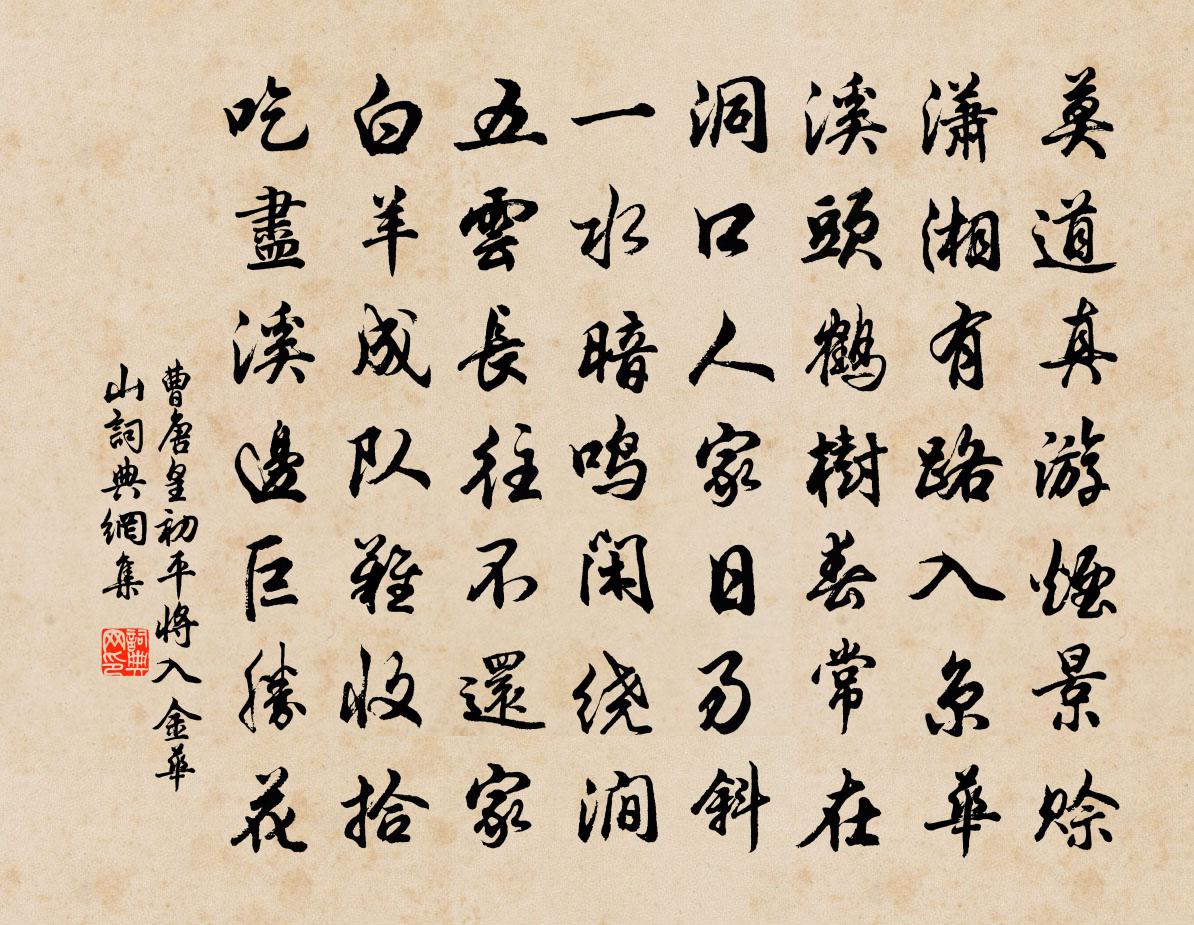 莫道真游煙景賒
瀟湘有路入京華
溪頭鶴樹春常在
洞口人家日易斜
一水暗鳴閑绕澗
五雲長往不還家
白羊成队難收拾
吃盡溪邊巨勝花
曹唐皇初平將入金華
山詞典網集
詞典
网印